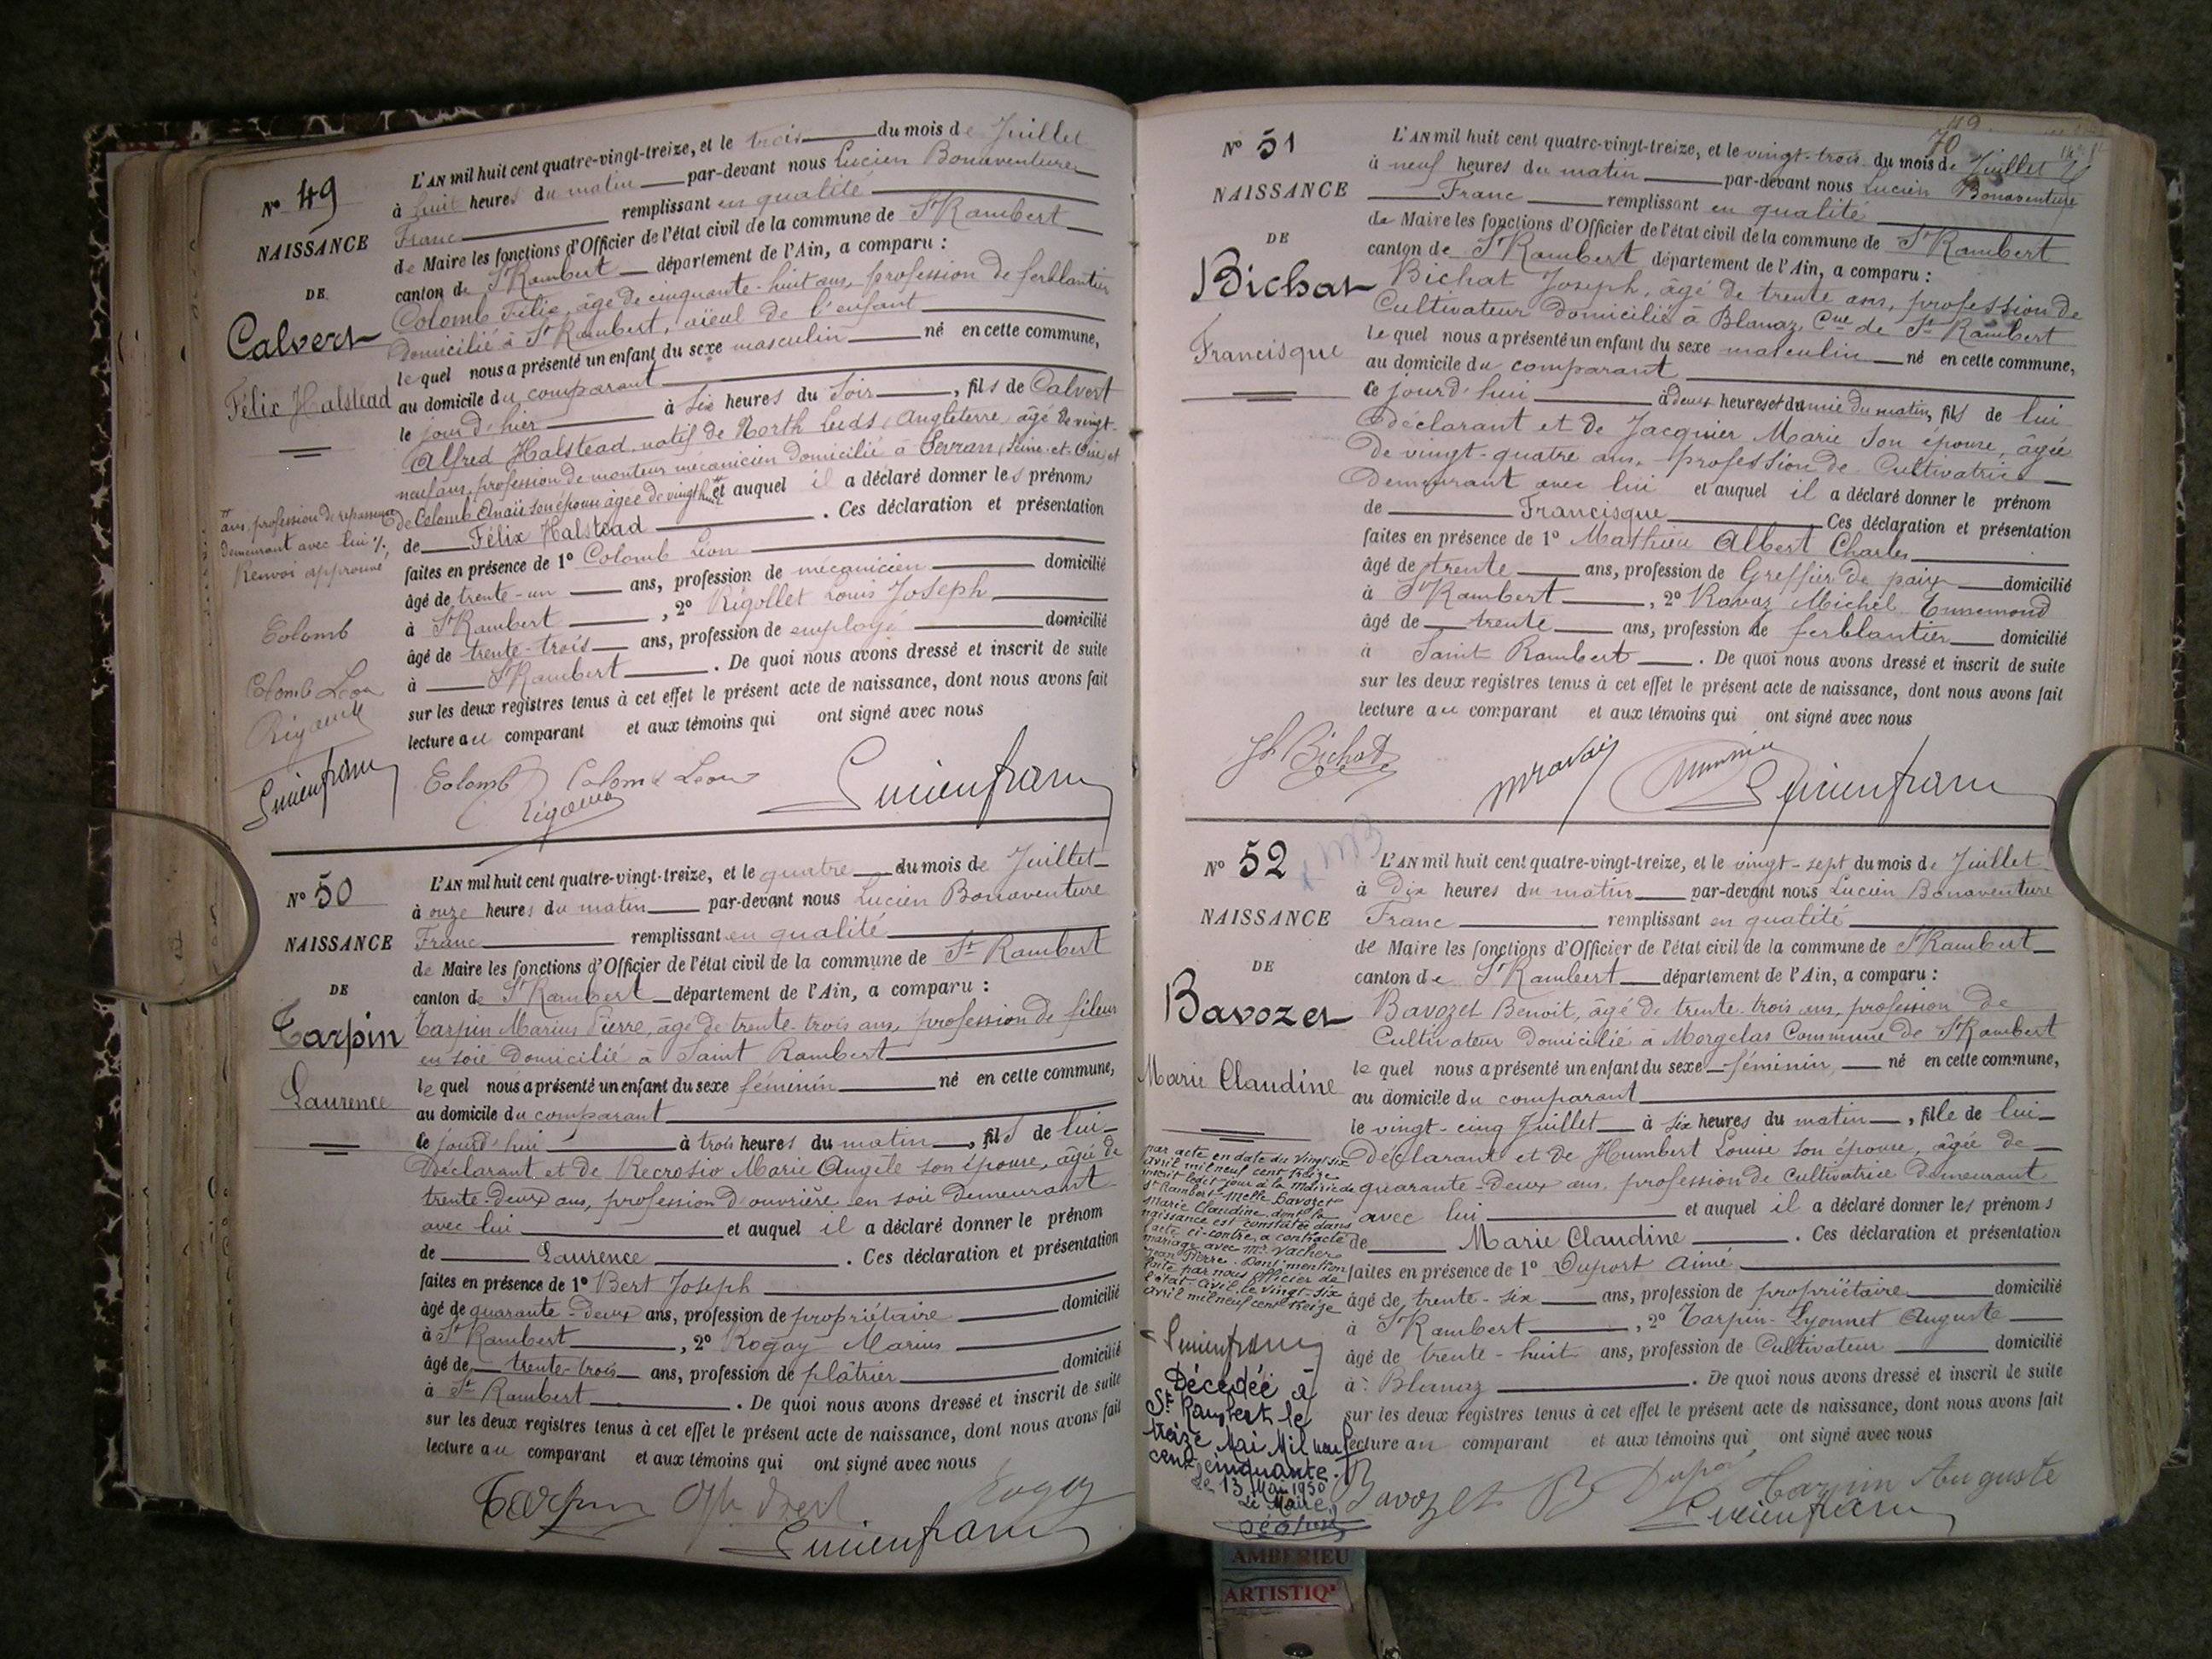 N° 49
NAISSANCE
DE
Calvert
Félix Halstead
L'AN mil huit cent quatre-vingt-treize, et le trois du mois de Juillet
à huit heures du matin par-devant nous Lucien Bonaventure
Franc remplissant en qualité
de Maire les fonctions d'Officier de l'état civil de la commune de St Rambert
canton de St Rambert département de l'Ain, a comparu :
Colomb Félix, âgé de cinquante-huit ans, profession de ferblantier
domicilié à St Rambert, aïeul de l'enfant
lequel nous a présenté un enfant du sexe masculin né en cette commune,
au domicile du comparant
le jour d'hier à six heures du soir, fils de Calvert
Alfred Halstead, natif de North Leeds (Angleterre) âgé de vingt-
neuf ans, profession de monteur mécanicien domicilié à Sevran (Seine-et-Oise) et
de Colomb Anaïs son épouse âgée de vingt-huit et auquel il a déclaré donner les prénoms
ans, profession de repasseuse
demeurant avec lui %
Renvoi approuvé
de Félix Halstead. Ces déclaration et présentation
faites en présence de 1° Colomb Léon
âgé de trente-un ans, profession de mécanicien domicilié
à St Rambert, 2° Rigollet Louis Joseph
âgé de trente-trois ans, profession de employé domicilié
à St Rambert. De quoi nous avons dressé et inscrit de suite
sur les deux registres tenus à cet effet le présent acte de naissance, dont nous avons fait
lecture au comparant et aux témoins qui ont signé avec nous
Colomb
Colomb Léon
Lucien franc
Colomb Colomb Léon Lucien franc
N° 50
NAISSANCE
DE
Tarpin
Laurence
L'AN mil huit cent quatre-vingt-treize, et le quatre du mois de Juillet
à onze heures du matin par-devant nous Lucien Bonaventure
Franc remplissant en qualité
de Maire les fonctions d'Officier de l'état civil de la commune de St Rambert
canton de St Rambert département de l'Ain, a comparu :
Tarpin Marius Pierre, âgé de trente-trois ans, profession de fileur
en soie domicilié à Saint Rambert
lequel nous a présenté un enfant du sexe féminin né en cette commune,
au domicile du comparant
ce jourd'hui à trois heures du matin, fils de lui-
déclarant et de Recrosio Marie Angèle son épouse, âgée de
trente-deux ans, profession d'ouvrière en soie demeurant
avec lui et auquel il a déclaré donner le prénom
de Laurence. Ces déclaration et présentation
faites en présence de 1° Bert Joseph
âgé de quarante-deux ans, profession de propriétaire domicilié
à St Rambert, 2° Rogay Marius
âgé de trente-trois ans, profession de plâtrier domicilié
à St Rambert. De quoi nous avons dressé et inscrit de suite
sur les deux registres tenus à cet effet le présent acte de naissance, dont nous avons fait
lecture au comparant et aux témoins qui ont signé avec nous
Tarpin Rogay
Lucien franc
49
70
N° 51
NAISSANCE
DE
Bichat
Francisque
L'AN mil huit cent quatre-vingt-treize, et le vingt-trois du mois de Juillet
à neuf heures du matin par-devant nous Lucien Bonaventure
Franc remplissant en qualité
de Maire les fonctions d'Officier de l'état civil de la commune de St Rambert
canton de St Rambert département de l'Ain, a comparu :
Bichat Joseph, âgé de trente ans, profession de
Cultivateur domicilié à Blanaz Cne de St Rambert
lequel nous a présenté un enfant du sexe masculin né en cette commune,
au domicile du comparant
ce jourd'hui à deux heures et demie du matin, fils de lui
déclarant et de Jacquier Marie son épouse, âgée
de vingt-quatre ans, profession de Cultivatrice
demeurant avec lui et auquel il a déclaré donner le prénom
de Francisque. Ces déclaration et présentation
faites en présence de 1° Mathieu Albert Charles
âgé de trente ans, profession de Greffier de paix domicilié
à St Rambert, 2° Ravaz Michel Ennemond
âgé de trente ans, profession de ferblantier domicilié
à Saint Rambert. De quoi nous avons dressé et inscrit de suite
sur les deux registres tenus à cet effet le présent acte de naissance, dont nous avons fait
lecture au comparant et aux témoins qui ont signé avec nous
Jh Bichat mravaz Lucien franc
N° 52
NAISSANCE
DE
Bavozet
Marie Claudine
L'AN mil huit cent quatre-vingt-treize, et le vingt-sept du mois de Juillet
à dix heures du matin par-devant nous Lucien Bonaventure
Franc remplissant en qualité
de Maire les fonctions d'Officier de l'état civil de la commune de St Rambert
canton de St Rambert département de l'Ain, a comparu :
Bavozet Benoit, âgé de trente-trois ans, profession de
Cultivateur domicilié à Morgelas Commune de St Rambert
lequel nous a présenté un enfant du sexe féminin, né en cette commune,
au domicile du comparant
le vingt-cinq Juillet à six heures du matin, fille de lui
déclarant et de Humbert Louise son épouse, âgée de
quarante-deux ans, profession de Cultivatrice demeurant
avec lui et auquel il a déclaré donner les prénoms
de Marie Claudine. Ces déclaration et présentation
faites en présence de 1° Duport Aimé
âgé de trente-six ans, profession de propriétaire domicilié
à St Rambert, 2° Tarpin-Lyonnet Auguste
âgé de trente-huit ans, profession de Cultivateur domicilié
à Blanaz. De quoi nous avons dressé et inscrit de suite
sur les deux registres tenus à cet effet le présent acte de naissance, dont nous avons fait
lecture au comparant et aux témoins qui ont signé avec nous
par acte en date du vingt six
avril mil neuf cent treize
inscrit ledit jour à la mairie de
St Rambert Melle Bavozet
Marie Claudine dont la
naissance est constatée dans
l'acte ci-contre, a contracté
mariage avec Mr Vacher
Jean Pierre. Dont mention
faite par nous officier de
l'état-civil, le vingt-six
avril mil neuf cent treize
Lucien franc
Décédée à
St Rambert le
treize Mai Mil neuf
cent cinquante.
Le 13 Mai 1950
Le Maire,
Bavozet B Dupor Tarpin Auguste
Lucien franc
AMBERIEU
ARTISTIQ'